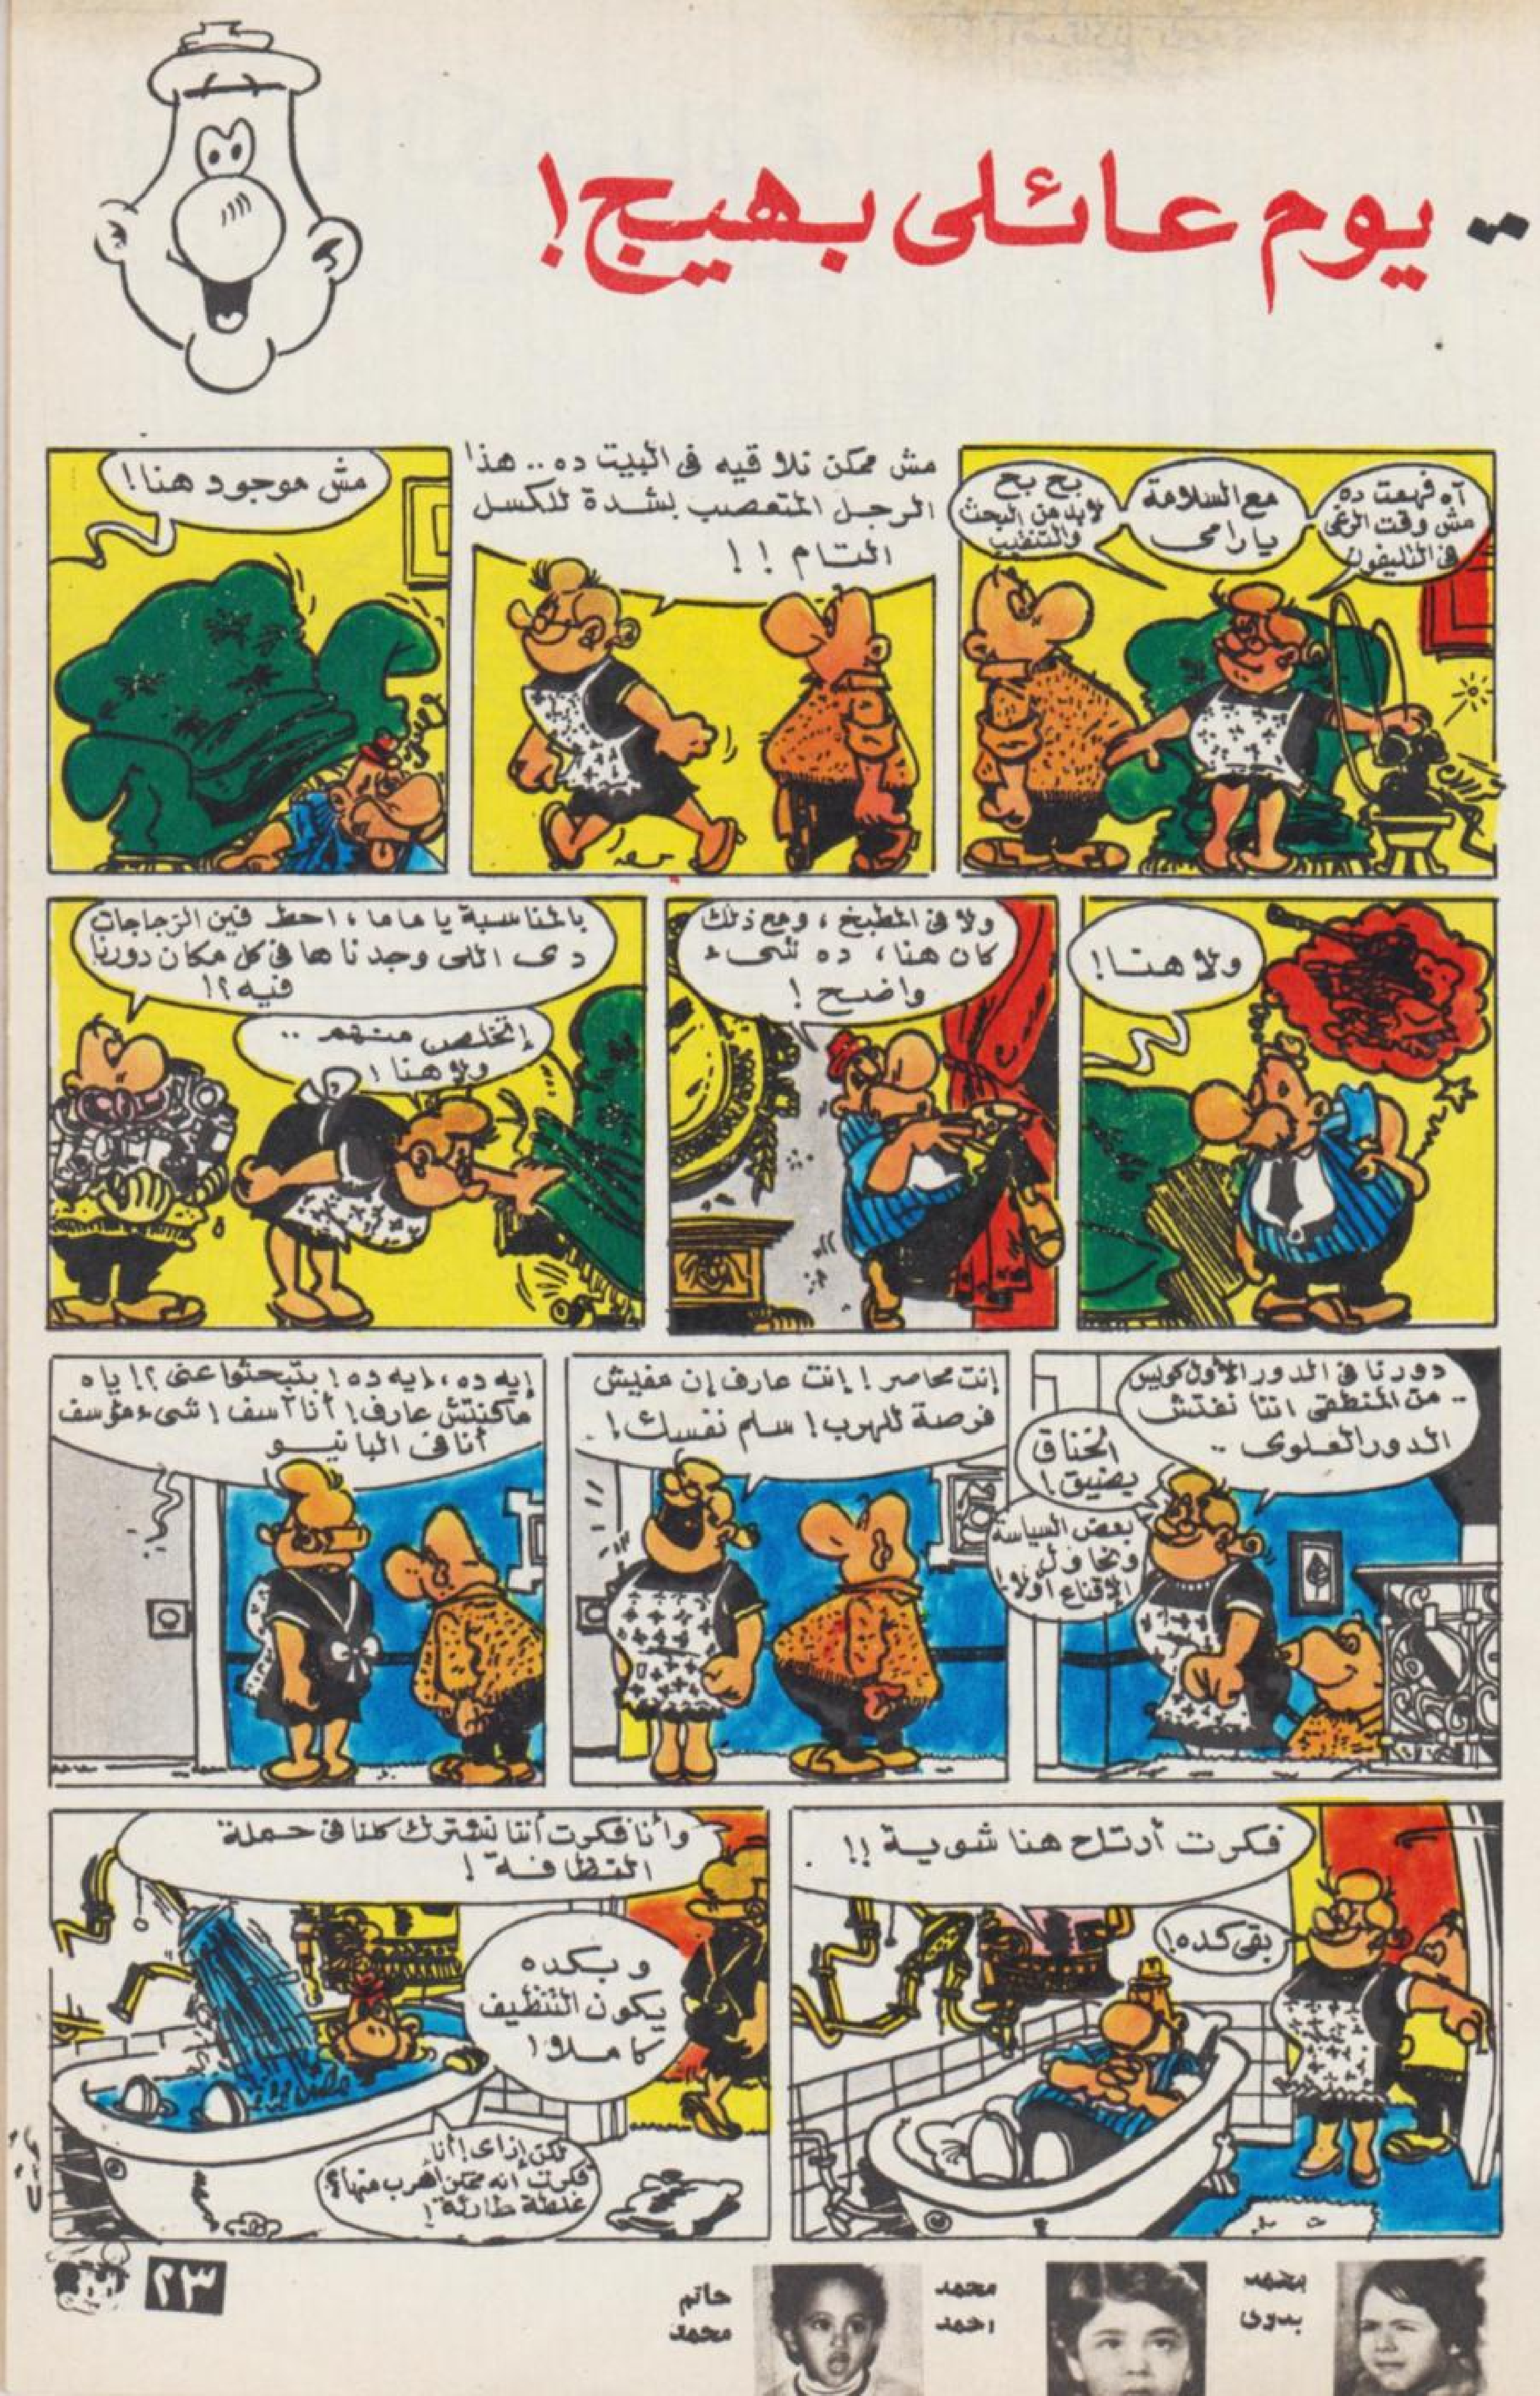 .. يوم عائلى بهيج!
آه فهمت ده
مش وقت الرغى
فى التليفون
مع السلامة
يارامى
بح بح
لابد من البحث
والتنظيف
مش ممكن نلاقيه فى البيت ده .. هذا
الرجل المتعصب بشدة للكسل
التام !!
مش موجود هنا!
ولا هنا!
ولا فى المطبخ ، ومع ذلك
كان هنا ، ده شىء
واضح !
بالمناسبة يا ماما ، احط فين الزجاجات
دى اللى وجدناها فى كل مكان دورنا
فيه ؟!
إتخلص منهم ..
ولا هنا !
دورنا فى الدور الأول كويس
.. من المنطقى اننا نفتش
الدور العلوى ..
الخناق
يضيق !
بعض السياسة
ونحاول
الإقناع أولا !
إنت محاصر ! إنت عارف إن مفيش
فرصة للهرب ! سلم نفسك ! .
إيه ده ، إيه ده ! بتبحثوا عنى ؟! ياه
ماكنتش عارف ! أنا آسف ! شىء مؤسف
أنا فى البانيو
فكرت أرتاح هنا شوية !!
بقى كده !
وأنا فكرت أننا نشترك كلنا فى حملة
النظافة !
وبكده
يكون التنظيف
كاملا !
لكن إزاى ! أنا
فكرت انه ممكن أهرب منها ؟
غلطة
محمد
بدوى
محمد
احمد
حاتم
محمد
٢٣